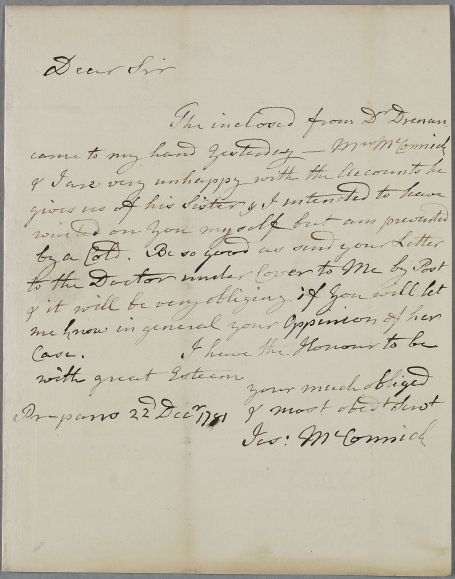 Dear Sir
The inclosed from Dr Drenan
came to my hand Yesterday — Mrs McCormick
& I are very unhappy with the Accounts he
gives us of his Sister, & I intended to have
waited on You myself but am prevented
by a Cold. Be so good as send your Letter
to the Doctor under Cover to Me by Post
& it will be very obliging if You will let
me know in general your Oppinion of her
Case. I have the Honour to be
with great Esteem
your much obliged
22d Decr 1781
& most obedt Servt
Jas: McCormick